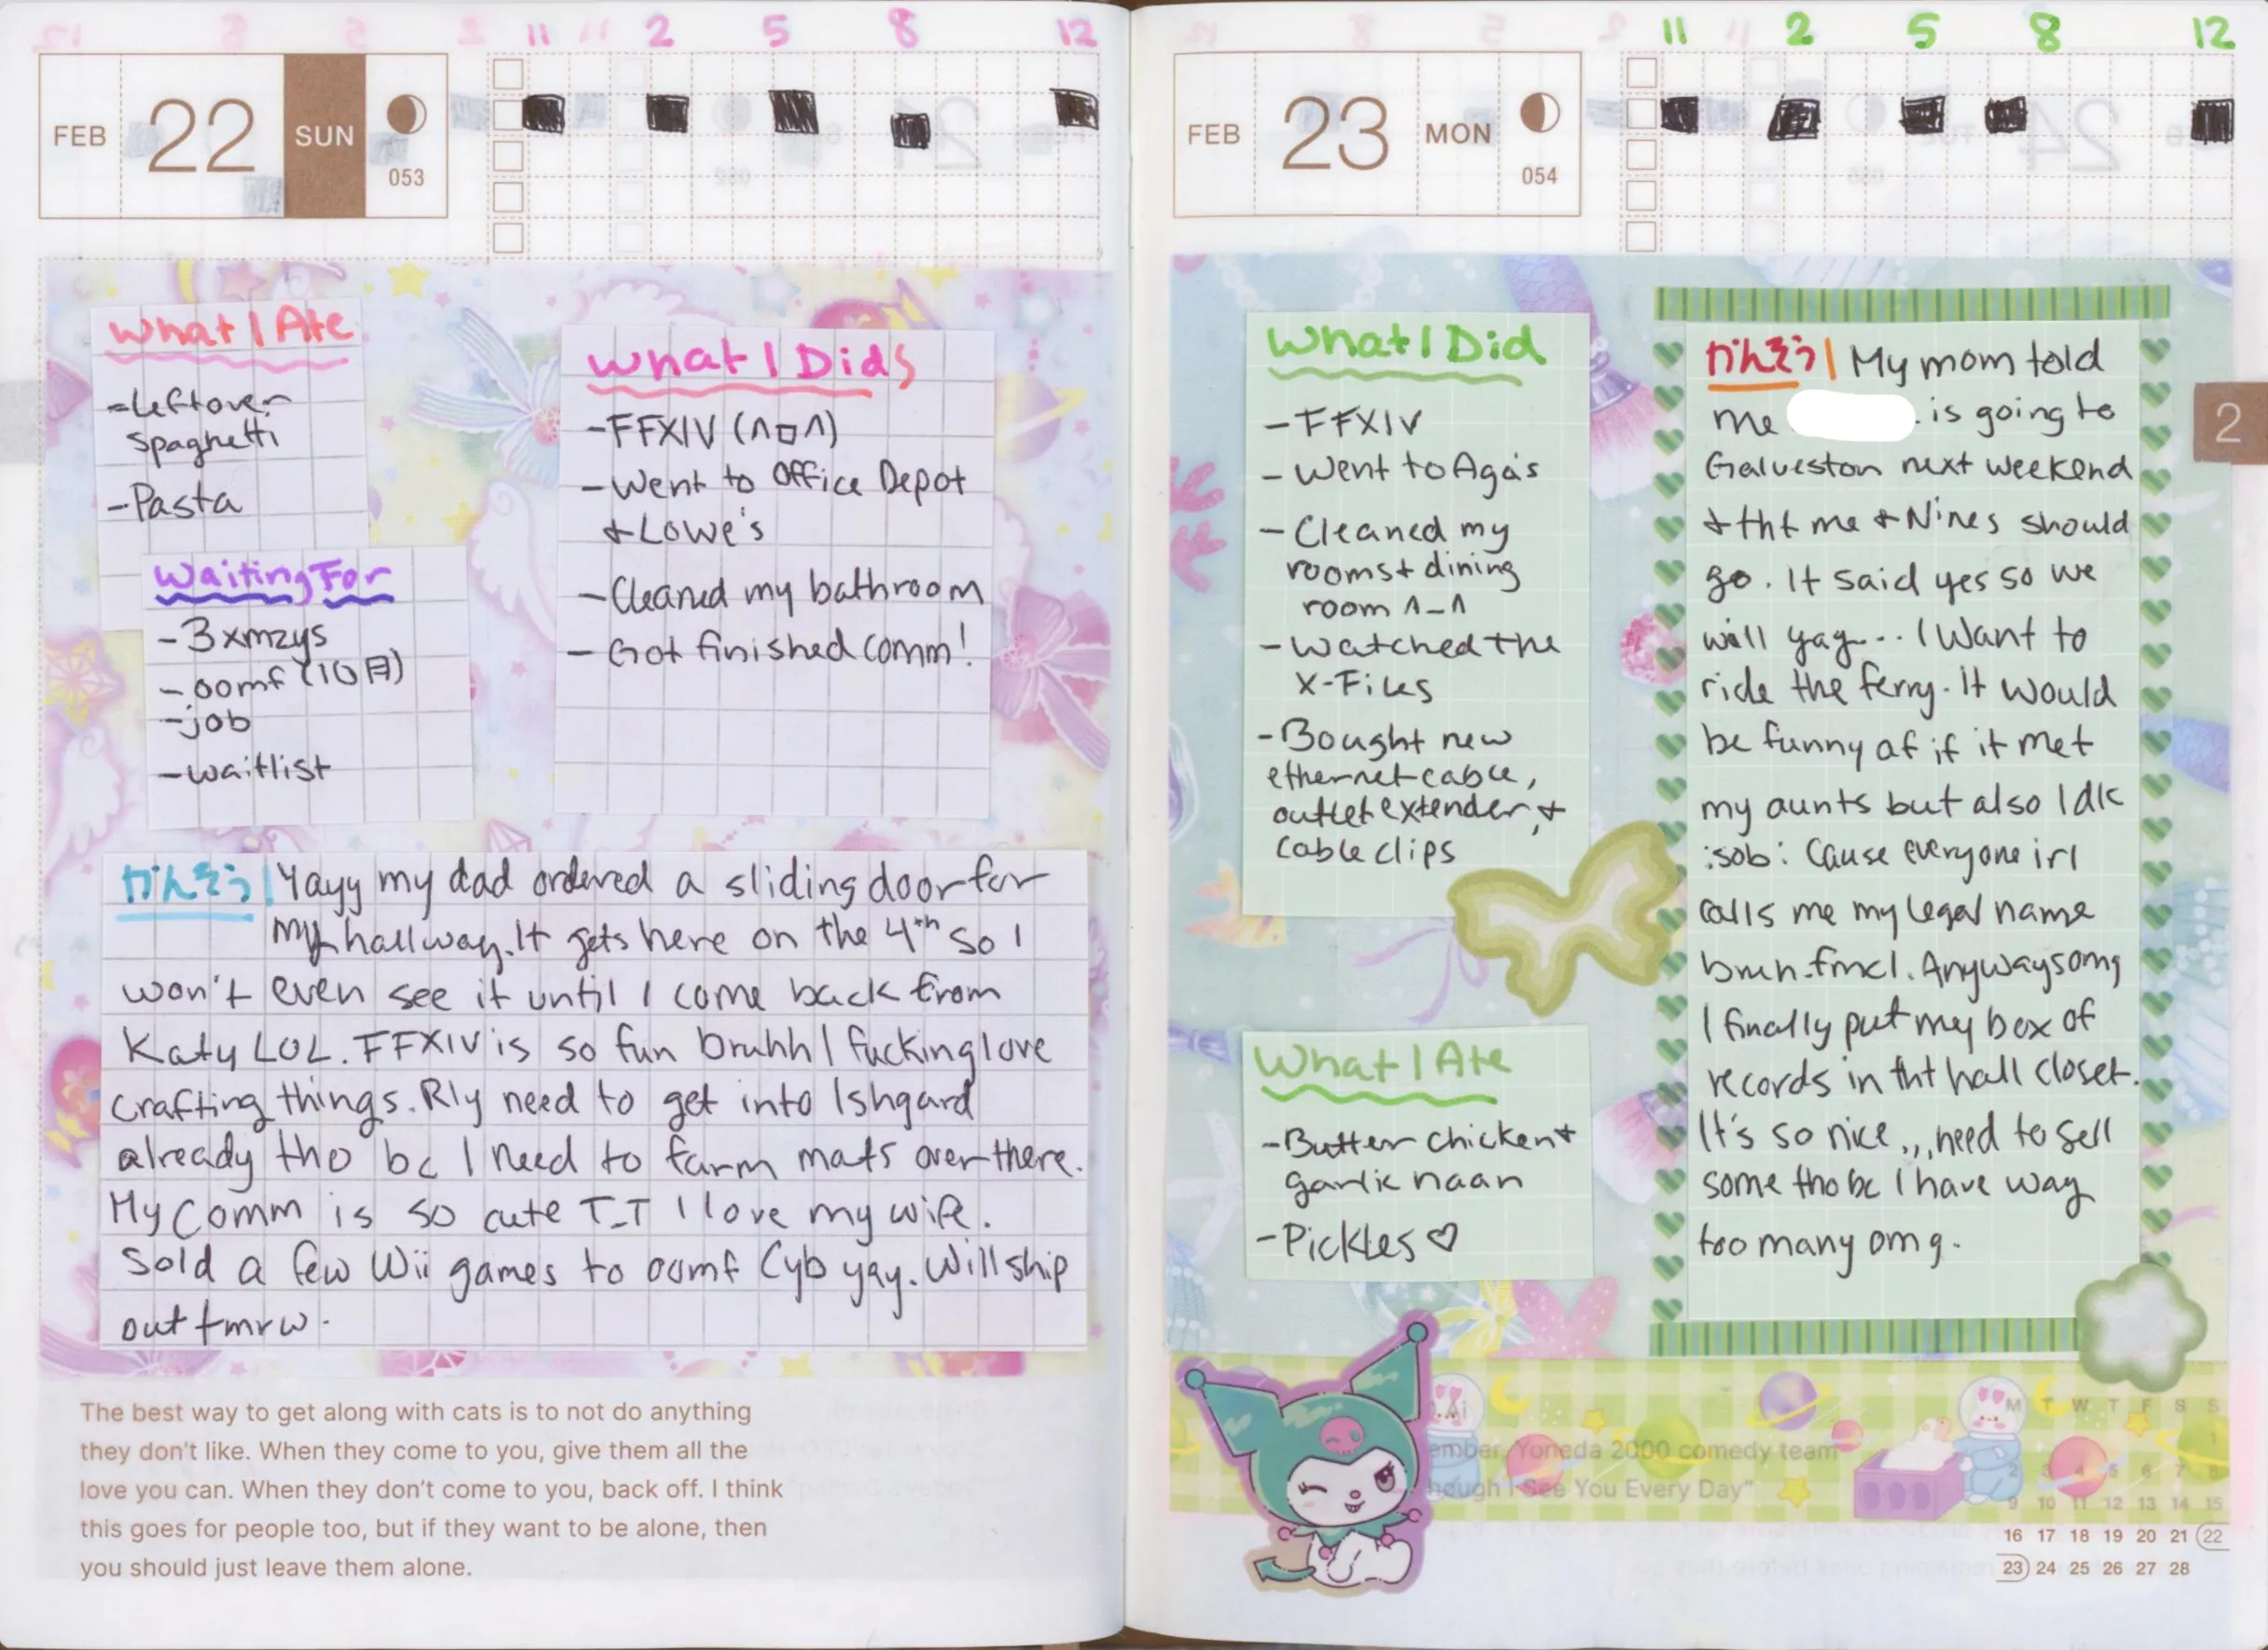 11 2 5 8 12
FEB 22 SUN
053
What I Ate
-Leftover
spaghetti
-Pasta
Waiting For
-3 xmzys
-oomf (10月)
-job
-waitlist
What I Did
-FFXIV (^□^)
-Went to Office Depot
+ Lowe's
-Cleaned my bathroom
-Got finished comm!
かんそう| Yayy my dad ordered a sliding door for
my hallway. It gets here on the 4th so I
won't even see it until I come back from
Katy LOL. FFXIV is so fun bruhh I fucking love
crafting things. Rly need to get into Ishgard
already tho bc I need to farm mats over there.
My comm is so cute T_T I love my wife.
Sold a few Wii games to oomf Cyb yay. Will ship
out tmrw.
The best way to get along with cats is to not do anything
they don't like. When they come to you, give them all the
love you can. When they don't come to you, back off. I think
this goes for people too, but if they want to be alone, then
you should just leave them alone.
11 2 5 8 12
FEB 23 MON
054
What I Did
-FFXIV
-Went to Aga's
-Cleaned my
rooms + dining
room ^_^
-Watched the
X-Files
-Bought new
ethernet cable,
outlet extender, +
cable clips
What I Ate
-Butter chicken +
garlic naan
-Pickles ♡
かんそう| My mom told
me is going to
Galveston next weekend
+ tht me + Nines should
go. It said yes so we
will yay... I want to
ride the ferry. It would
be funny af if it met
my aunts but also Idk
:sob: Cause everyone irl
calls me my legal name
bruh. fmcl. Anyways omg
I finally put my box of
records in tht hall closet.
It's so nice,,, need to sell
some tho bc I have way
too many omg.
2
ember, Yoneda 2000 comedy team
hough I See You Every Day"
M T W T F S S
1
2 3 4 5 6 7 8
9 10 11 12 13 14 15
16 17 18 19 20 21 22
23 24 25 26 27 28